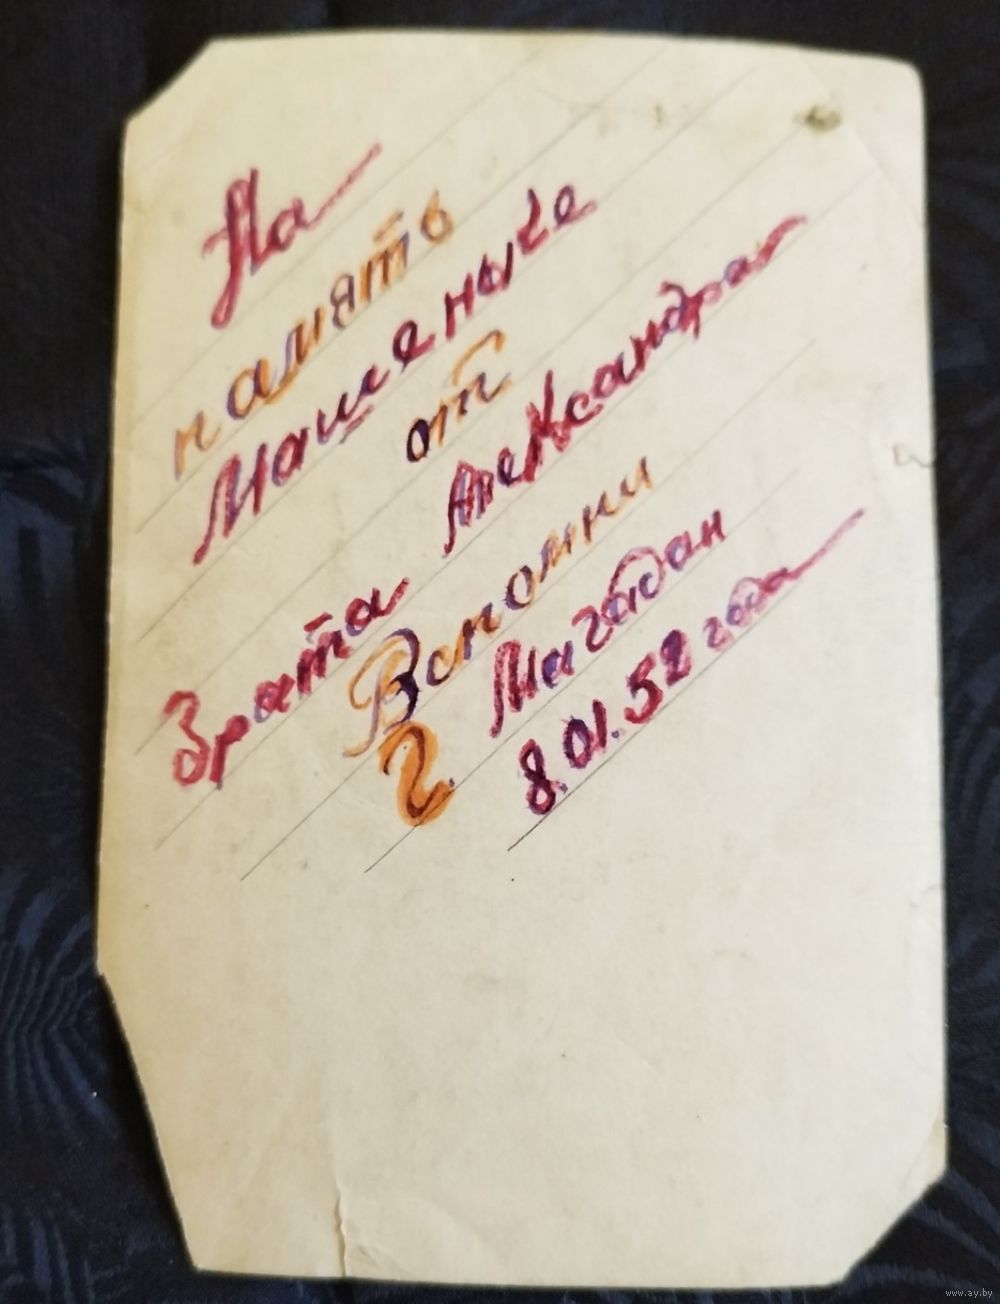 На
память
Машеньке
от
Александра
Зрата
Вспомни
г. Магадан
8.01.52 года
www.ay.by